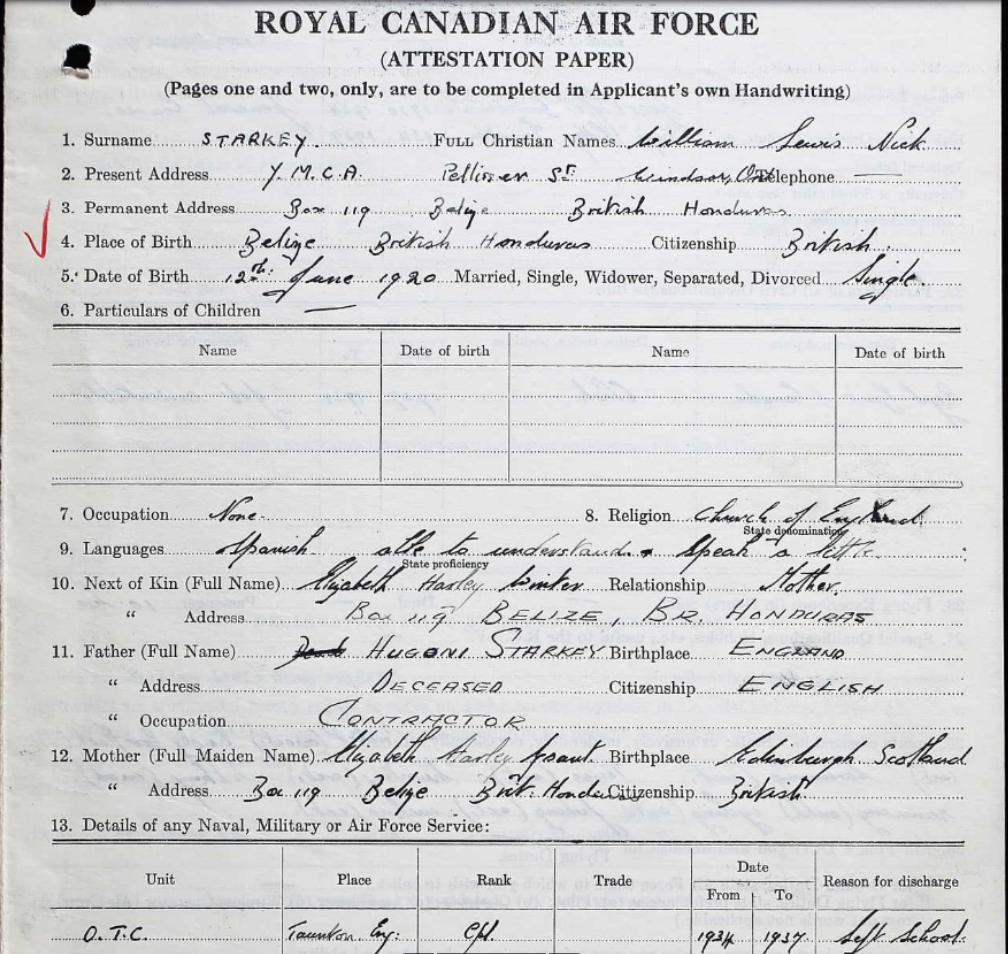 ROYAL CANADIAN AIR FORCE
(ATTESTATION PAPER)
(Pages one and two, only, are to be completed in Applicant's own Handwriting)
1. Surname STARKEY. FULL Christian Names William Lewis Nick
2. Present Address Y.M.C.A. Pellisier St Windsor, Ont Telephone —
3. Permanent Address Box 119 Belize British Honduras.
4. Place of Birth Belize British Honduras Citizenship British.
5. Date of Birth 12th: June 1920 Married, Single, Widower, Separated, Divorced Single.
6. Particulars of Children —
Name Date of birth Name Date of birth
7. Occupation None. 8. Religion Church of England.
State denomination
9. Languages Spanish able to understand & speak a little.
State proficiency
10. Next of Kin (Full Name) Elizabeth Harley Winter Relationship Mother.
" Address Box 119 BELIZE, BR. HONDURAS
11. Father (Full Name) STARKEY Birthplace ENGLAND
" Address DECEASED Citizenship ENGLISH
" Occupation CONTRACTOR
12. Mother (Full Maiden Name) Elizabeth Harley Birthplace Edinburgh Scotland
" Address Box 119 Belize Brit. Honduras Citizenship British
13. Details of any Naval, Military or Air Force Service:
Unit Place Rank Trade Date From To Reason for discharge
O.T.C. Taunton. Eng: Cpl. 1934 1937 Left School.